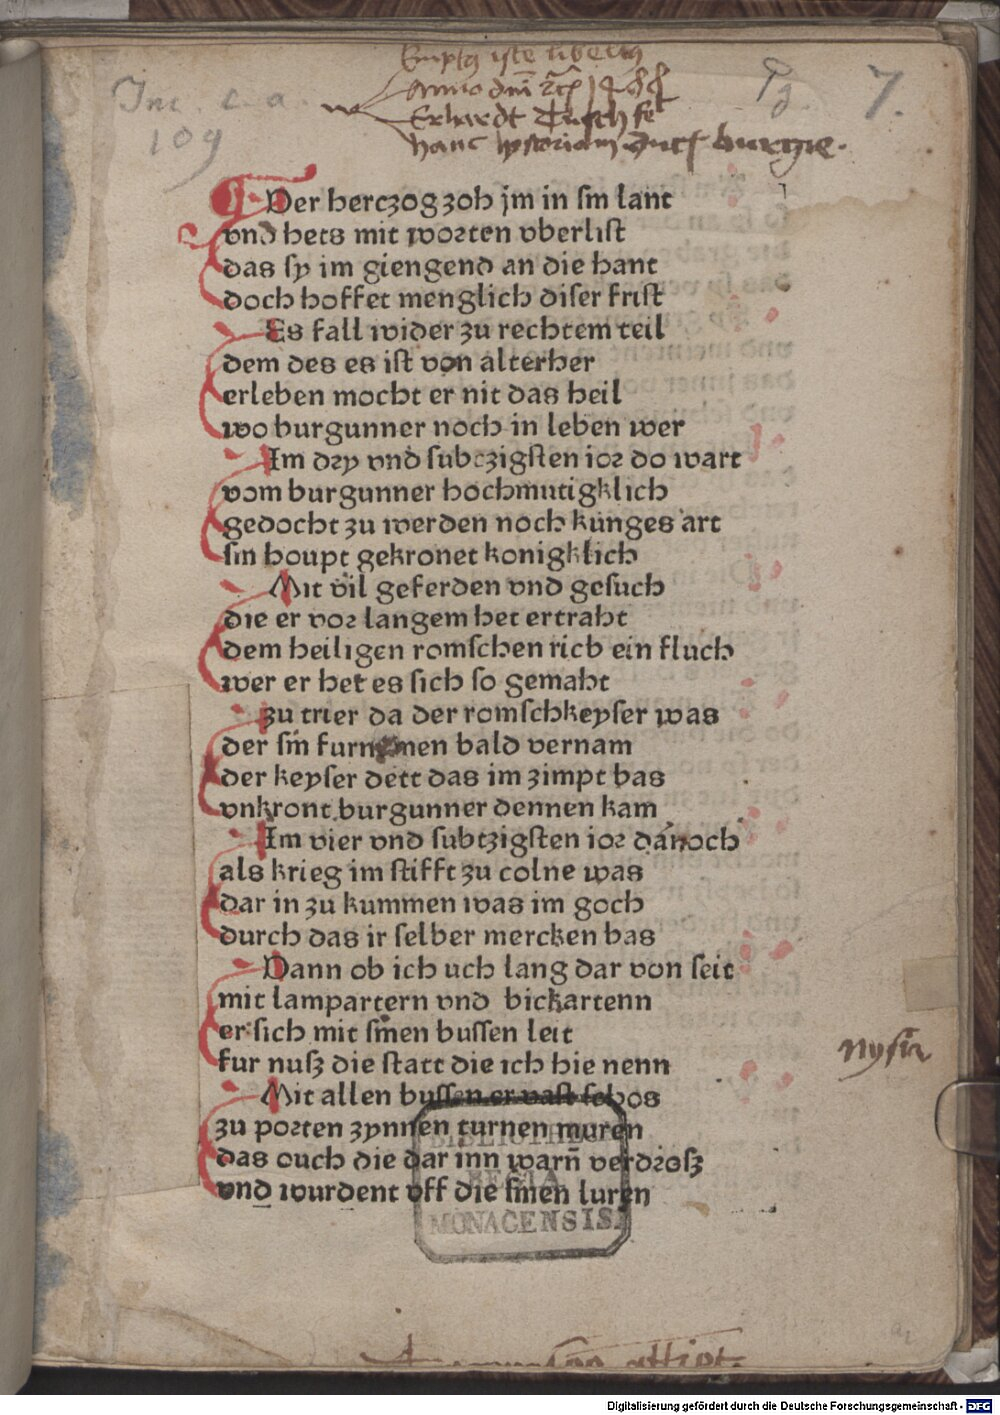 Inc. c. a.
109
Pg. 7.
Empt9 iste libell9
Anno dni
Erhardt Tusch
hanc hystoriam burgie.
Der herczog zoh jm in sin lant
vnd hets mit worten vberlist
das sy im giengend an die hant
doch hoffet menglich diser frist
Es fall wider zu rechtem teil
dem des es ist von alterher
erleben mocht er nit das heil
wo burgunner noch in leben wer
Im dry vnd subczigsten ior do wart
vom burgunner hochmutigklich
gedocht zu werden noch kunges art
sin houpt gekronet konigklich
Mit vil geferden vnd gesuch
die er vor langem het ertraht
dem heiligen romschen rich ein fluch
wer er het es sich so gemaht
zu trier da der romschkeyser was
der sin furnomen bald vernam
der keyser dett das im zimpt bas
vnkront burgunner dennen kam
Im vier vnd subtzigsten ior darnoch
als krieg im stifft zu colne was
dar in zu kummen was im goch
durch das ir selber mercken bas
Dann ob ich uch lang dar von seit
mit lampartern vnd bickartenn
er sich mit sinen bussen leit
fur nusz die statt die ich hie nenn
Mit allen bussen er vast schos
zu porten zynnen turnen muren
das ouch die dar inn warn̄ verdrosz
vnd wurdent vff die sinen luren
nysin
BIBLIOTHECA
REGIA
MONACENSIS.
Digitalisierung gefördert durch die Deutsche Forschungsgemeinschaft - DFG